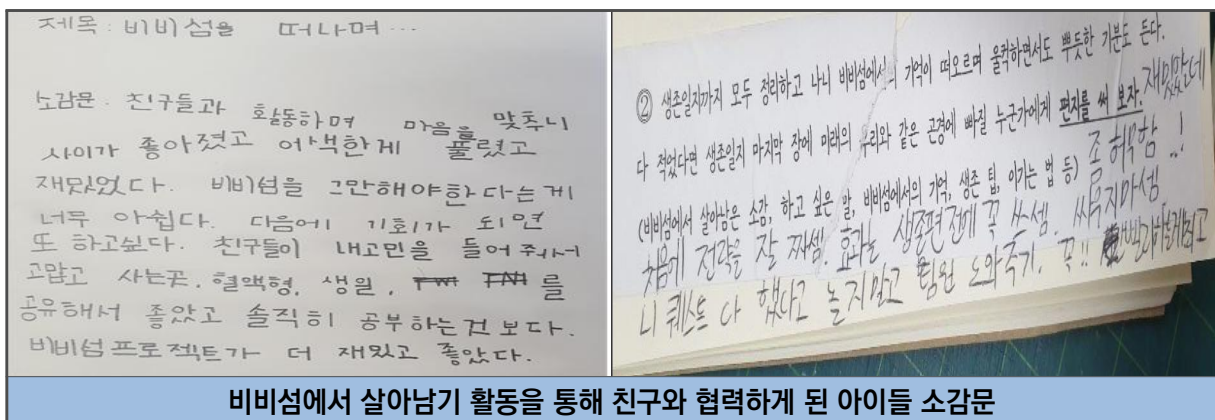 제목 : 비비섬을 떠나며...
소감문 : 친구들과 활동하며 마음을 맞추니
사이가 좋아졌고 어색한게 풀렸고
재밌었다. 비비섬을 그만해야한다는게
너무 아쉽다. 다음에 기회가 되면
또 하고싶다. 친구들이 내고민을 들어주어서
고맙고 사는곳, 혈액형, 생일, 를
공유해서 좋았고 솔직히 공부하는건 보다.
비비섬프로젝트가 더 재밌고 좋았다.
② 생존일지까지 모두 정리하고 나니 비비섬에서의 기억이 떠오르며 울컥하면서도 뿌듯한 기분도 든다.
다 적었다면 생존일지 마지막 장에 미래의 우리와 같은 곤경에 빠질 누군가에게 편지를 써 보자. 재밌었는데
(비비섬에서 살아남은 소감, 하고 싶은 말, 비비섬에서의 기억, 생존 팁, 이기는 법 등) 좀 허무함 ..!
처음에 전략을 잘 짜셈. 효과는 생존편전에 꼭 쓰셈. 싸우지마셈
니 퀘스트 다 했다고 놀지말고 팀원 도와주기. 꼭!!
비비섬에서 살아남기 활동을 통해 친구와 협력하게 된 아이들 소감문